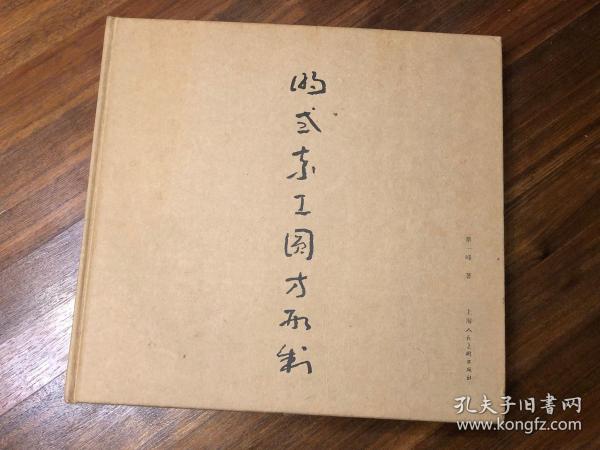 明式素工圆方形制
蔡一峰 著
上海人民美术出版社
孔夫子旧书网
www.kongfz.com